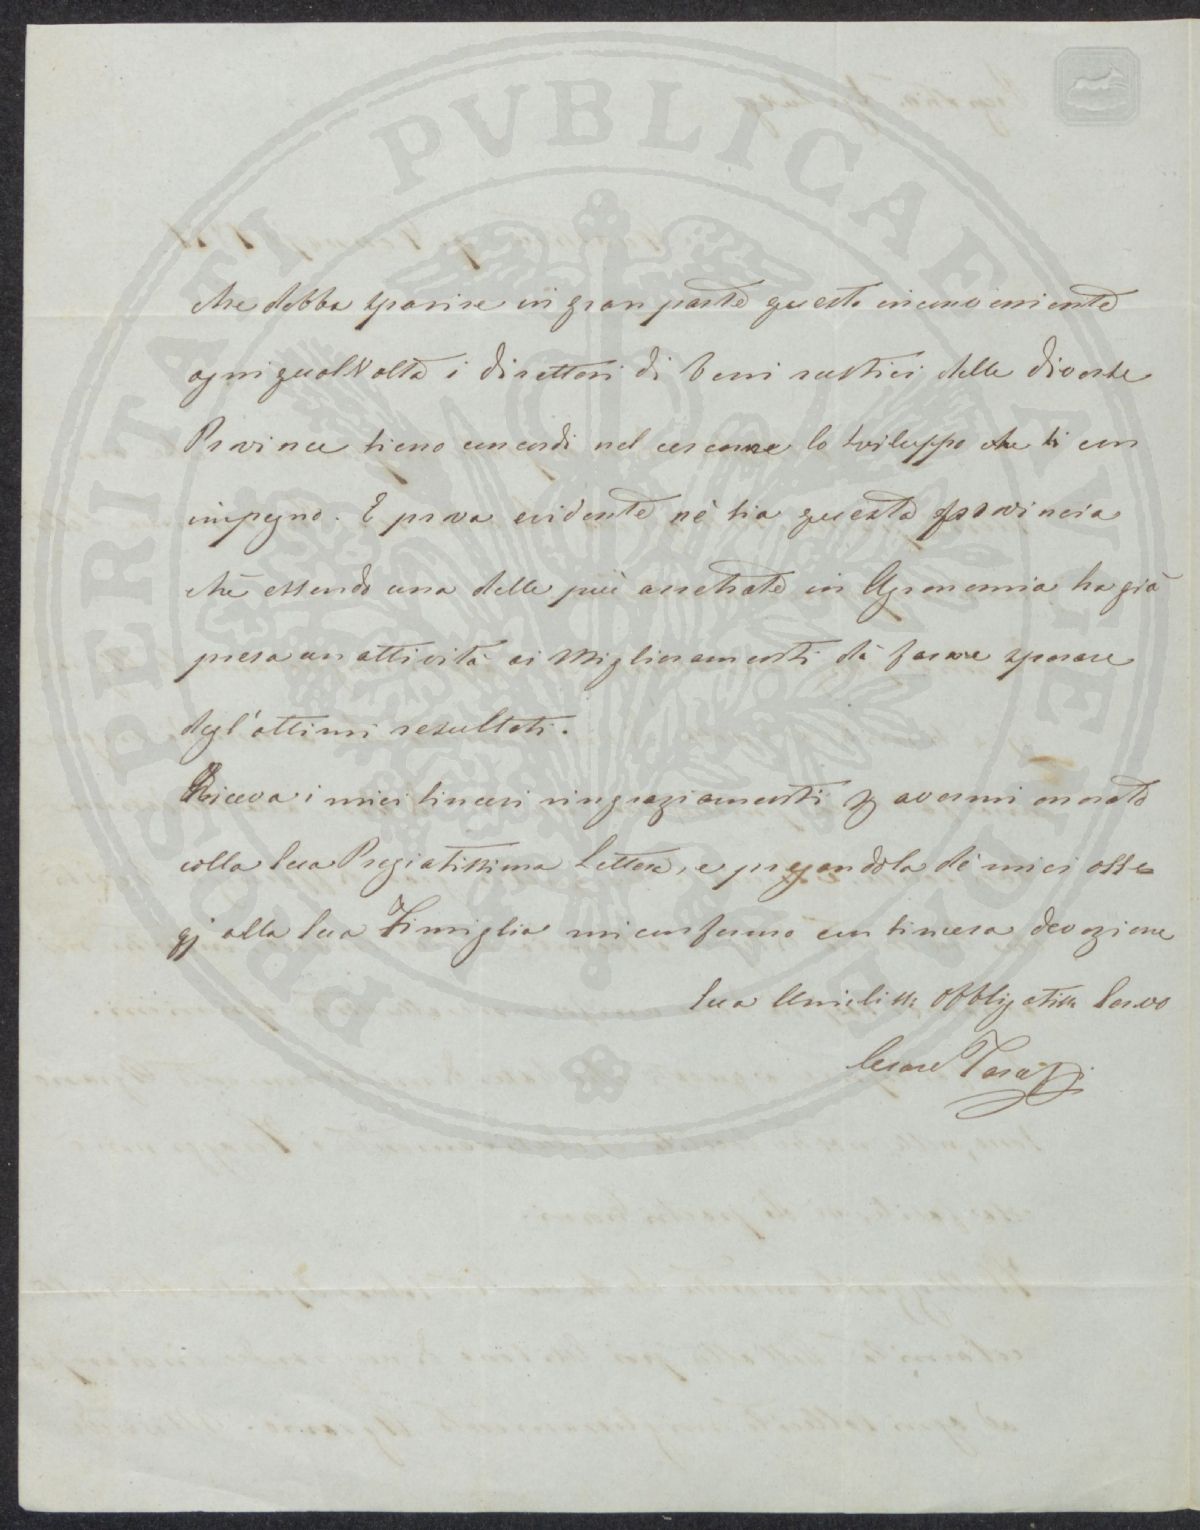 PROSPERITATI PVBLICAE AVGENDAE
che debba sparire in gran parte questo inconveniente
ogni qualVolta i direttori di beni rustici delle diverse
Province sieno concordi nel cercarne lo sviluppo che si con
impegno. E prova evidente nè sia questa provincia
chè essendo una delle più arretrate in Agronomia ha già
presa un attività ai Miglioramenti dà farne sperare
degl'ottimi resultati.
Riceva i miei sinceri ringraziamenti p avermi onorato
colla sua Pregiatissima Lettera, e pregandola dè miei osse
qj alla sua Famiglia mi confermo con sincera devozione
Sua Umiliss Obbligatiss Servo
Cesare